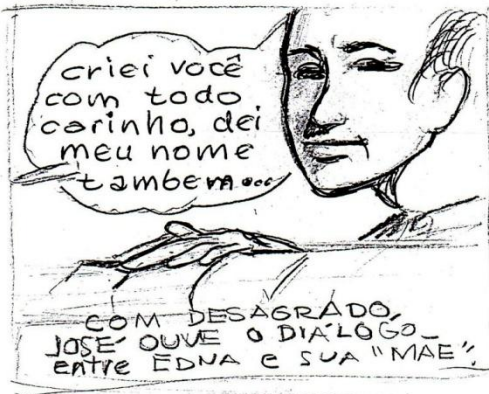 criei você
com todo
carinho, dei
meu nome
tambem...
COM DESAGRADO,
JOSÉ OUVE O DIÁLOGO
entre EDNA e SUA "MAE".